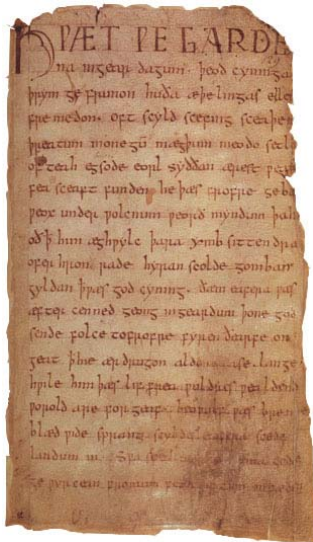 HǷÆT ǷE GARDE
na ingear dagum. þeod cyninga
þrym ge frunon huða æþelingas elle
fre medon. oft scyld scefing sceaþen
þreatum monegū mægþum meodo setl
of teah egsode eorl syððan ærest ƿear
fea sceaft funden he þæs frofre geba
ƿeox under ƿolcnum ƿeorð myndum þah
oð ꝥ him æghƿylc þara ymb sittendra
ofer hron rade hyran scolde gomban
gyldan ꝥ ƿæs god cyning. ðæm eafera ƿæs
æfter cenned geong ingeardum þone god
sende folce tofrofre fyren ðearfe on
geat ꝥ hie ær drugon aldor ase. lange
hƿile him þæs lif frea ƿuldres ƿealdend
ƿorold are for geaf. beoƿulf ƿæs breme
blæd ƿide sprang scyldes eafera scede
landum in. Sƿa sceal guma gode
ge ƿyrcean fromum feoh giftum